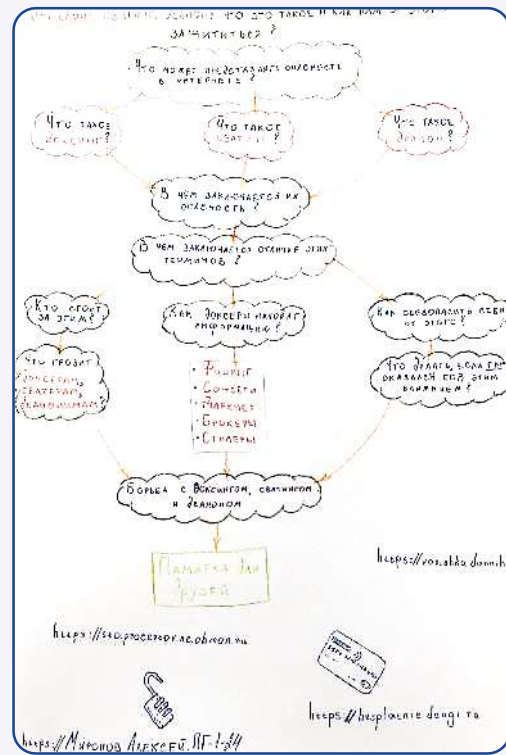 что это такое и как нам от этого
защититься?
Что может представлять опасность
в интернете?
Что такое
доксинг?
Что такое
сватинг?
Что такое
деанон?
В чем заключается их
опасность?
В чем заключается отличие этих
терминов?
Кто стоит
за этим?
Как доксеры находят
информацию?
Как обезопасить себя
от этого?
Что грозит
доксерам,
сватерам,
• Фишинг
• Соцсети
• Даркнет
• Брокеры
• Сталеры
Что делать, если ты
оказался под этим
влиянием?
Борьба с доксингом, сватингом
и деаноном
Памятка для
друзей
https://
https://
https://besplatnie.dengi.ru
https://Миронов Алексей.ПГ-1-24